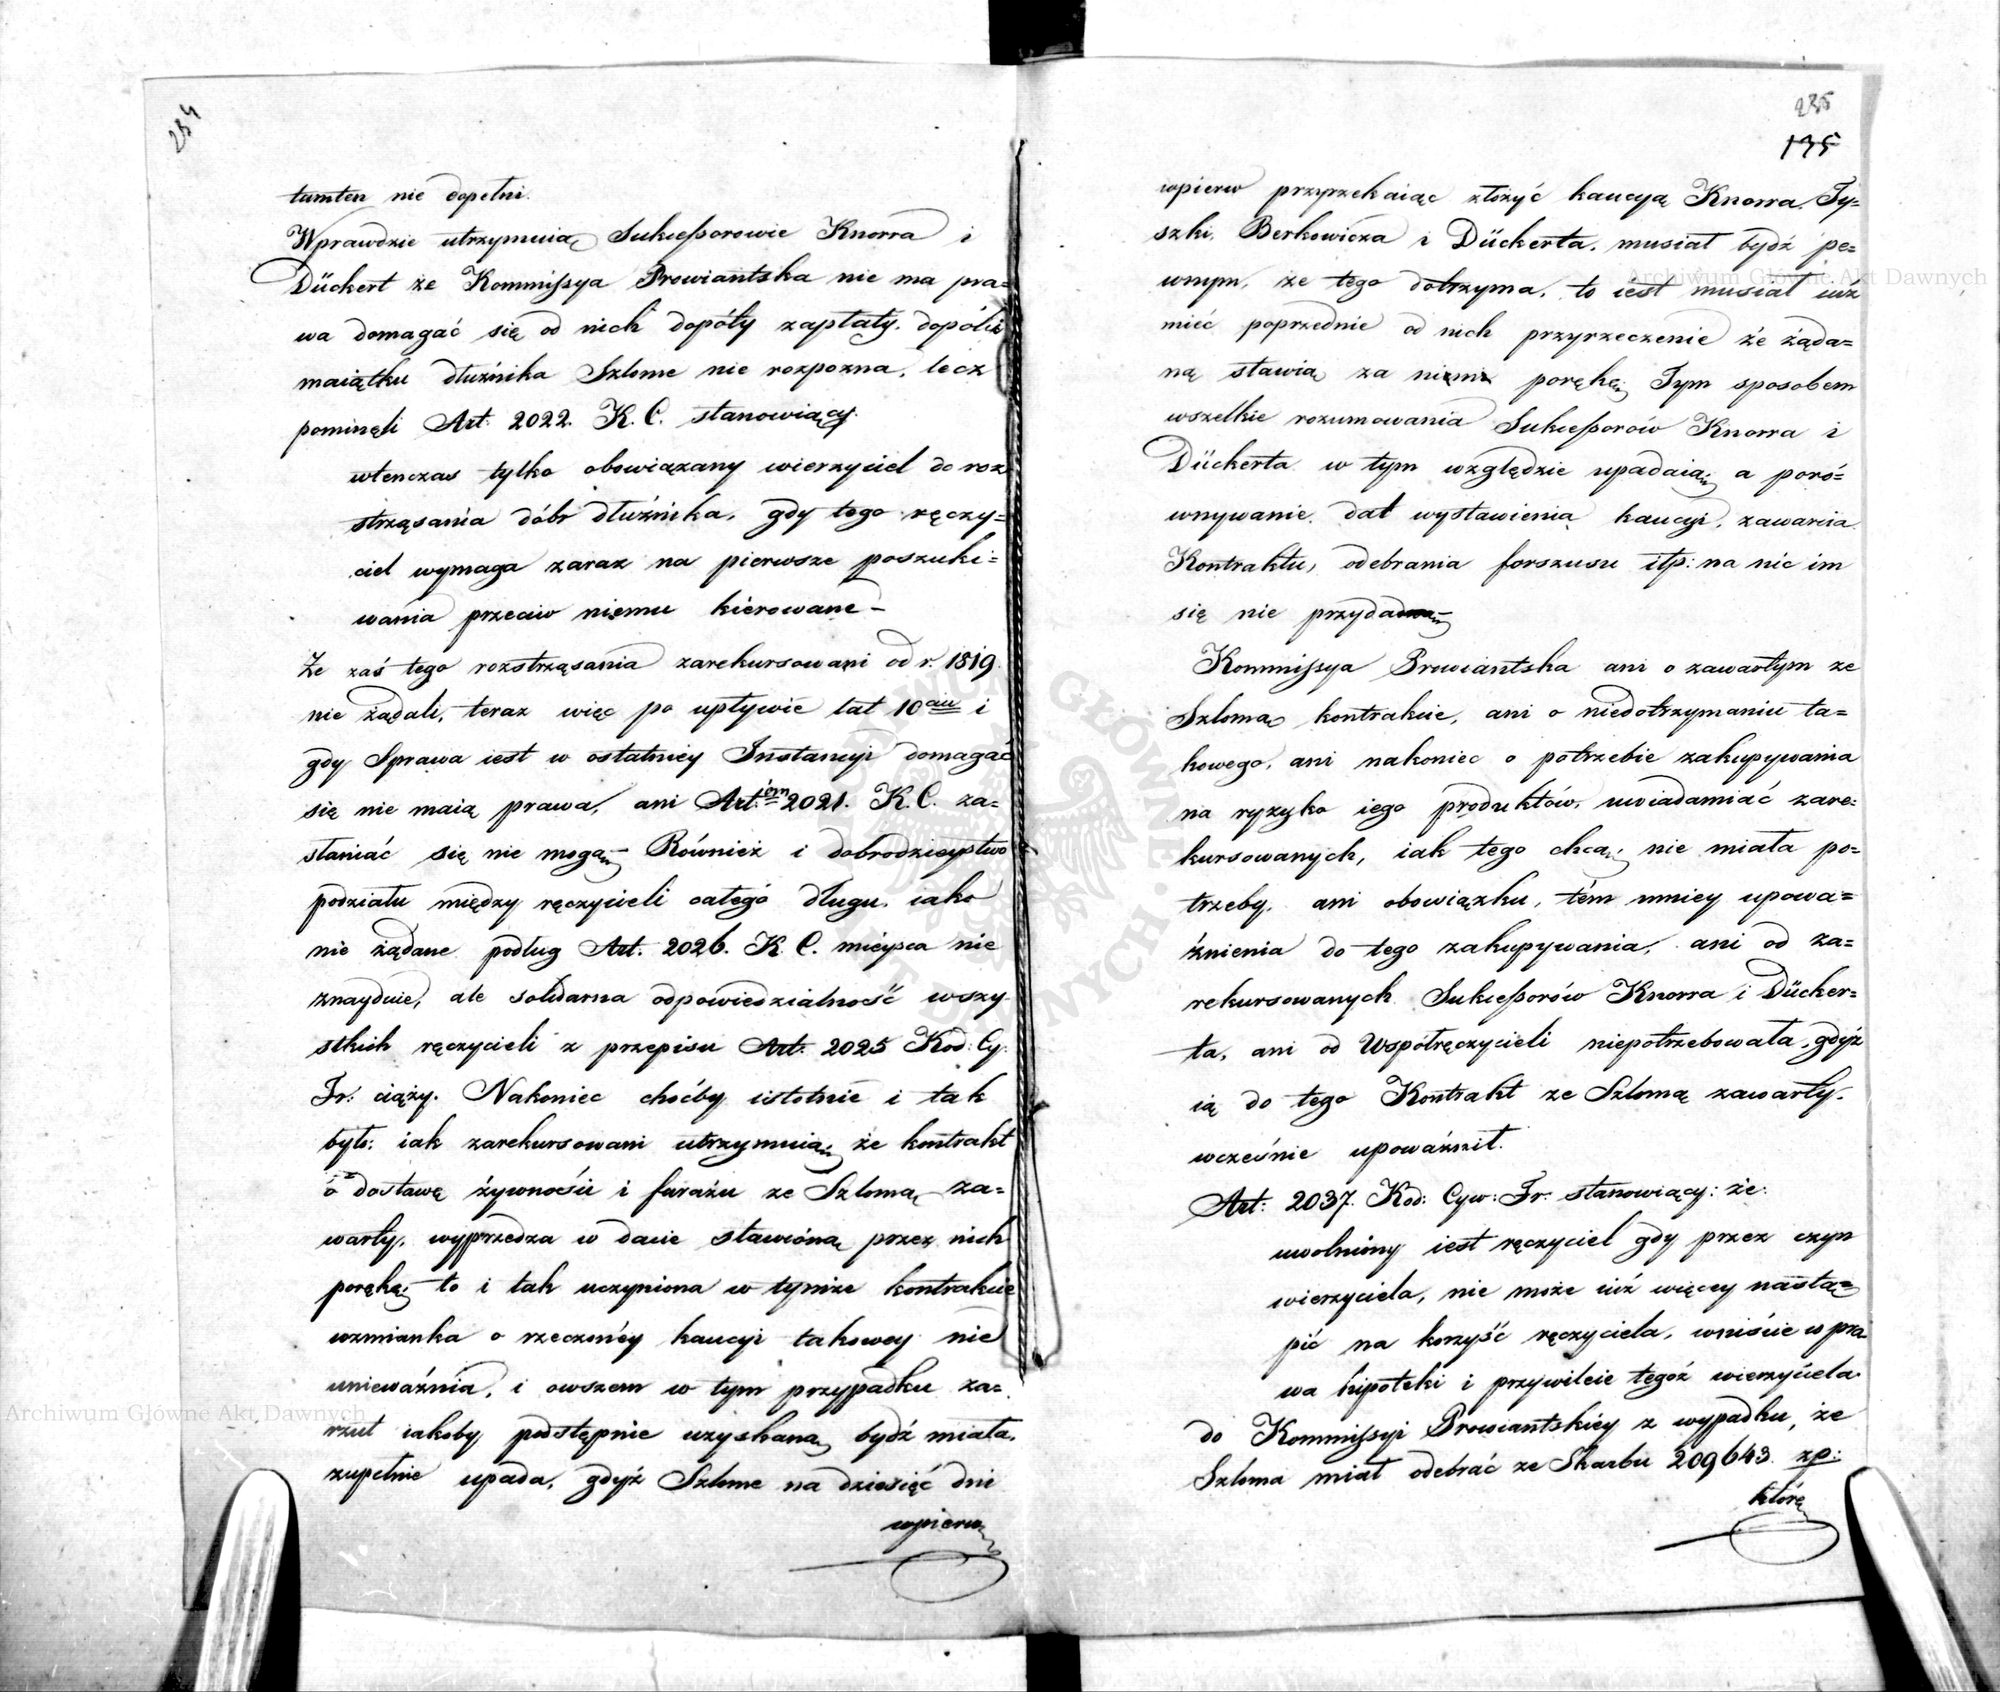 234
tamten nie dopełni.
Wprawdzie utrzymuią Sukcessorowie Knorra i
Dückert że Kommissya Prowiantska nie ma pra=
wa domagać się od nich dopóty zapłaty, dopóki
maiątku dłużnika Szlome nie rozpozna, lecz
pominęli Art: 2022. K. C. stanowiący.
wtenczas tylko obowiązany wierzyciel do roz
strząsania dóbr dłużnika, gdy tego ręczy=
ciel wymaga zaraz na pierwsze poszuki=
wania przeciw niemu kierowane –
Że zaś tego rozstrząsania zarekursowani od r. 1819.
nie żądali, teraz więc po upływie lat 10ciu i
gdy Sprawa iest w ostatniey Instancyi domagać
się nie maią prawa, ani Art:em 2021. K. C. za=
słaniać się nie mogą – Również i dobrodzieystwo
podziału między ręczycieli całego długu, iako
nie żądane podług Art. 2026. K. C. mieysca nie
znayduie, ale solidarna odpowiedzialność wszy
stkich ręczycieli z przepisu Art. 2025 Kod: Cy.
Fr: ciąży. Nakoniec choćby istotnie i tak
było: iak zarekursowani utrzymuią, że kontrakt
o dostawę żywności i furażu ze Szlomą za=
warty, wyprzedza w dacie stawioną przez nich
porękę, to i tak uczyniona w tymże kontrakcie
wzmianka o rzeczonéy kaucyi takowey nie
unieważnia, i owszem w tym przypadku za=
rzut iakoby podstępnie uzyskaną bydź miała,
zupełnie upada, gdyż Szlome na dziesięć dni
wpierw
235
135
wpierw przyrzekaiąc złożyć kaucyą Knorra, Ty=
szki, Berkowicza i Dückerta, musiał bydź pe=
wnym, że tego dotrzyma, to iest musiał iuż
mieć poprzednie od nich przyrzeczenie że żąda=
ną stawią za nim porękę. Tym sposobem
wszelkie rozumowania Sukcessorów Knorra i
Dückerta w tym względzie upadaią, a poró=
wnywanie dat wystawienia kaucyi, zawarcia
Kontraktu, odebrania forszusu itp: na nic im
się nie przyda
Kommissya Prowiantska ani o zawartym ze
Szlomą kontrakcie, ani o niedotrzymaniu ta=
kowego, ani nakoniec o potrzebie zakupywania
na ryzyko iego produktów, uwiadamiać zare=
kursowanych, iak tego chcą, nie miała po=
trzeby, ani obowiązku, tém mniey upowa=
żnienia do tego zakupywania, ani od za=
rekursowanych Sukcessorów Knorra i Dücker=
ta, ani od Współręczycieli niepotrzebowała, gdyż
ią do tego Kontrakt ze Szlomą zawarty.
wcześnie upoważnił.
Art: 2037. Kod: Cyw: Fr: stanowiący: że:
uwolniony iest ręczyciel gdy przez czyn
wierzyciela, nie może iuż więcey nastą=
pić na korzyść ręczyciela, wniście w pra
wa hipoteki i przywileie tegoż wierzyciela
do Kommissyi Prowiantskiey z wypadku, że
Szloma miał odebrać ze Skarbu 209643. zp:
którą
Archiwum Główne Akt Dawnych
Archiwum Główne Akt Dawnych